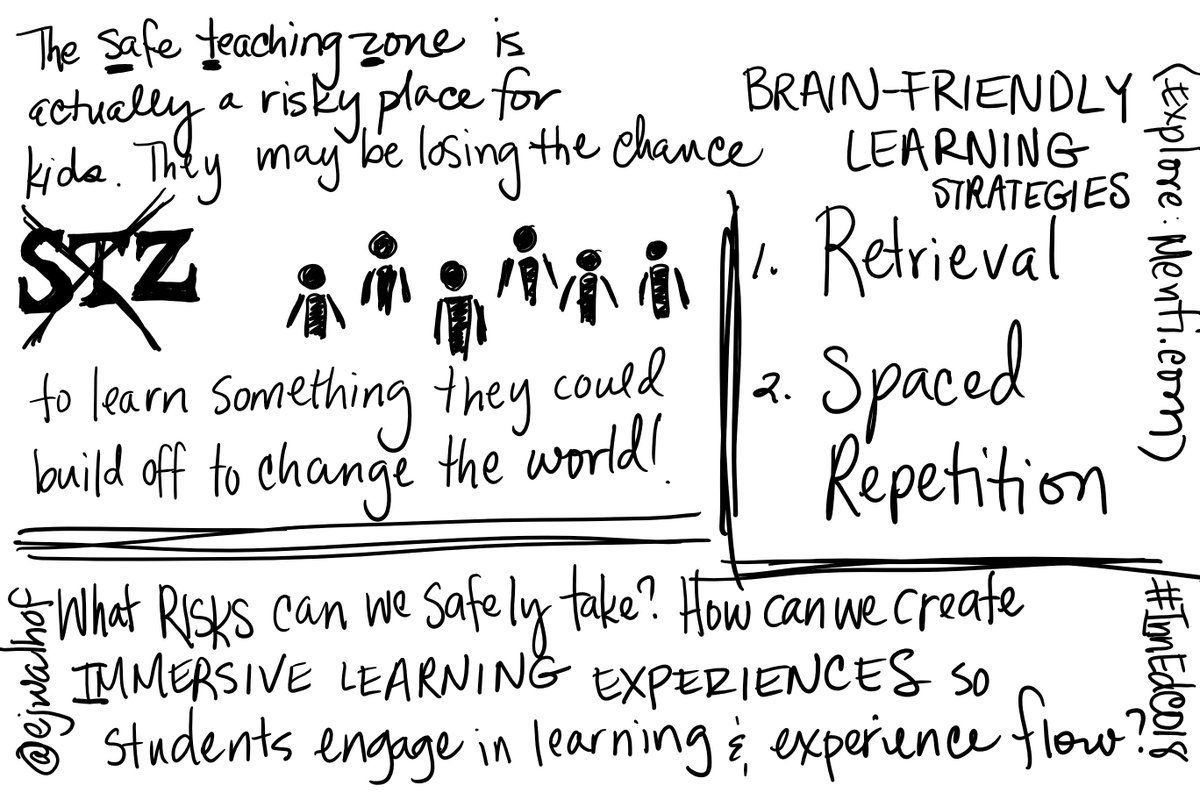 The safe teaching zone is
actually a risky place for
kids. They may be losing the chance
STZ
to learn something they could
build off to change the world!
BRAIN-FRIENDLY
LEARNING
STRATEGIES
1. Retrieval
2. Spaced
Repetition
(Explore: Menti.com)
What RISKS can we safely take? How can we create
IMMERSIVE LEARNING EXPERIENCES so
students engage in learning & experience flow?
@ejwalhof
#InnEdCO18